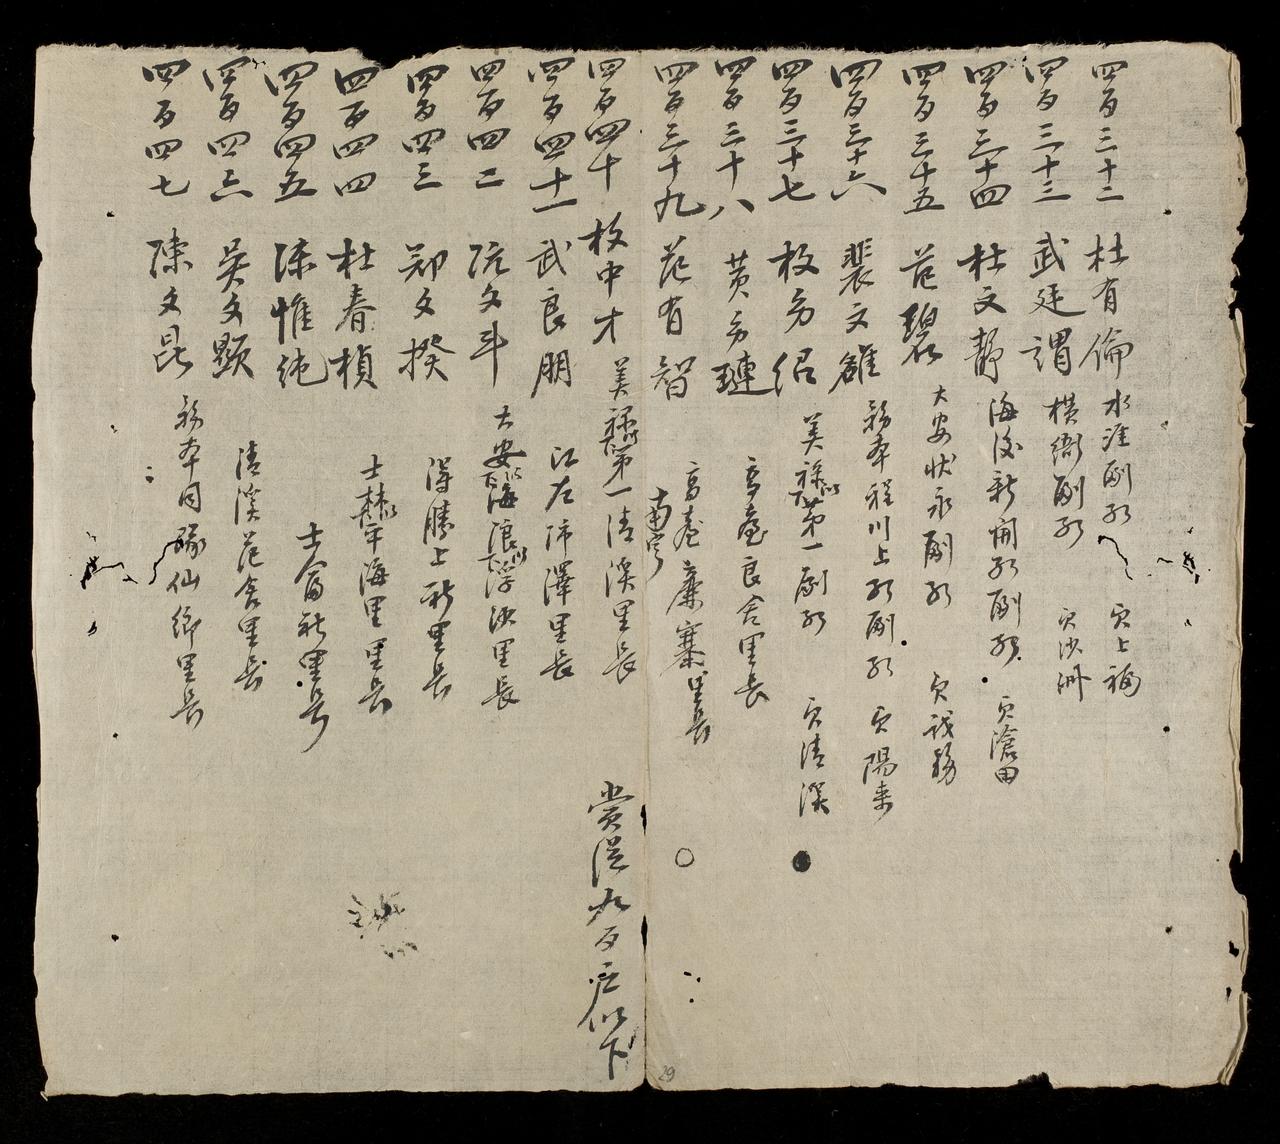 四百三十二 杜有倫 水淮副 欠上福
四百三十三 武廷謂 橫衢副 欠沙洲
四百三十四 杜文靜 海後新開副 欠滄田
四百三十五 范碧 大安狀永副 欠
四百三十六 裴文雒 務本程川上副 欠陽来
四百三十七 枚方紹 美祿第一副 欠清溪
四百三十八 黄方璉 高臺良舍里長
四百三十九 范有智 南寧高臺廉寨里長
四百四十 枚中才 美祿第一清溪里長 賞從九百户以下
四百四十一 武良朋 江左沛澤里長
四百四二 阮文斗 大安海浪浮決里長
四百四三 鄭文揆 得勝上新里長
四百四四 杜春楨 士林平海里里長
四百四五 陳惟純 士富社里長
四百四六 吳文顯 清溪范舍里長
四百四七 陳文昆 務本同豚仙鄉里長
29